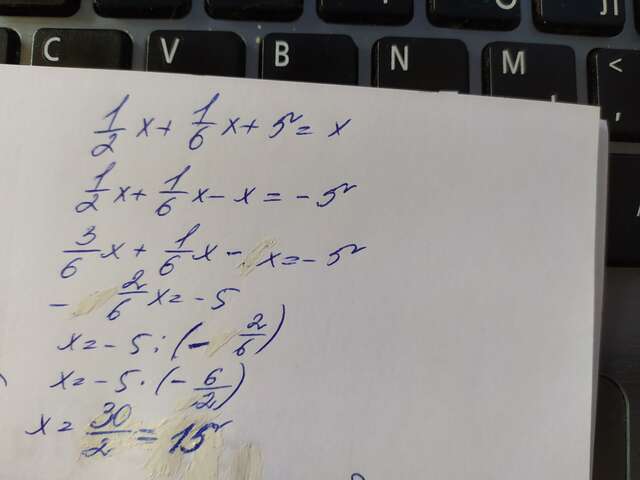 C V B N M <
,
1/2 x + 1/6 x + 5 = x
1/2 x + 1/6 x - x = - 5
3/6 x + 1/6 x - x = - 5
- 2/6 x = - 5
x = - 5 : (- 2/6)
x = - 5 · (- 6/2)
x = 30/2 = 15